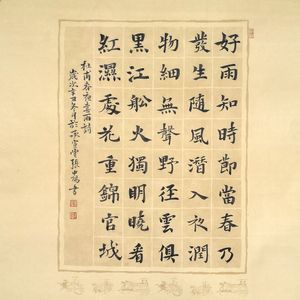 好雨知時節當春乃
發生隨風潛入夜潤
物細無聲野徑雲俱
黑江舩火獨明曉看
紅濕處花重錦官城
杜甫春夜喜雨詩
歲次辛丑冬月於